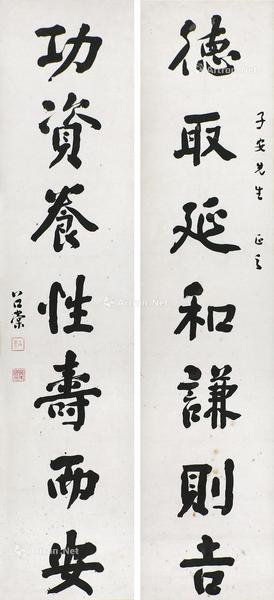 德取延和謙則吉
子安先生 正之
功資養性壽而安
召棠